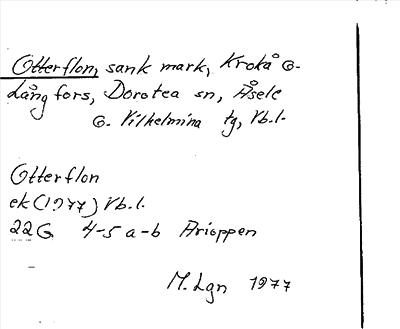 Otterflon, sank mark, Krokå o.
Långfors, Dorotea sn, Åsele
o. Vilhelmina tg, Vb.l.
Otterflon
ek (1977) Vb.l.
22G 4-5 a-b Arioppen
M. Lgn 1977